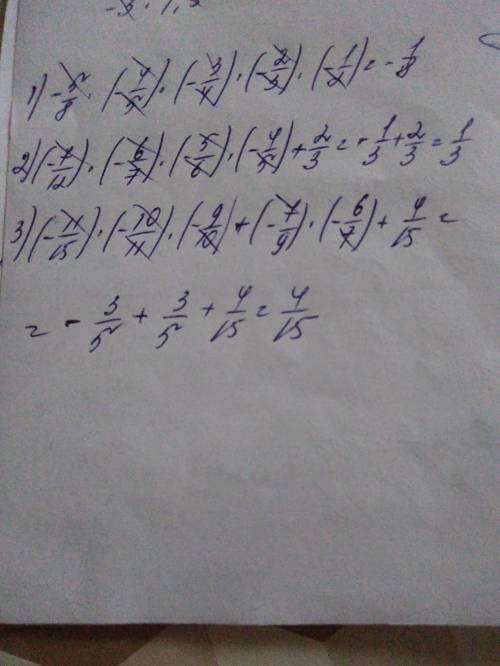 1) -5/8 · (-4/5) · (-3/4) · (-2/3) · (-1/2) = -1/8
2) (-7/12) · (-6/7) · (-5/6) · (-4/5) + 2/3 = -1/3 + 2/3 = 1/3
3) (-11/15) · (-10/11) · (-9/10) + (-7/9) · (-6/7) + 4/15 =
= -3/5 + 3/5 + 4/15 = 4/15